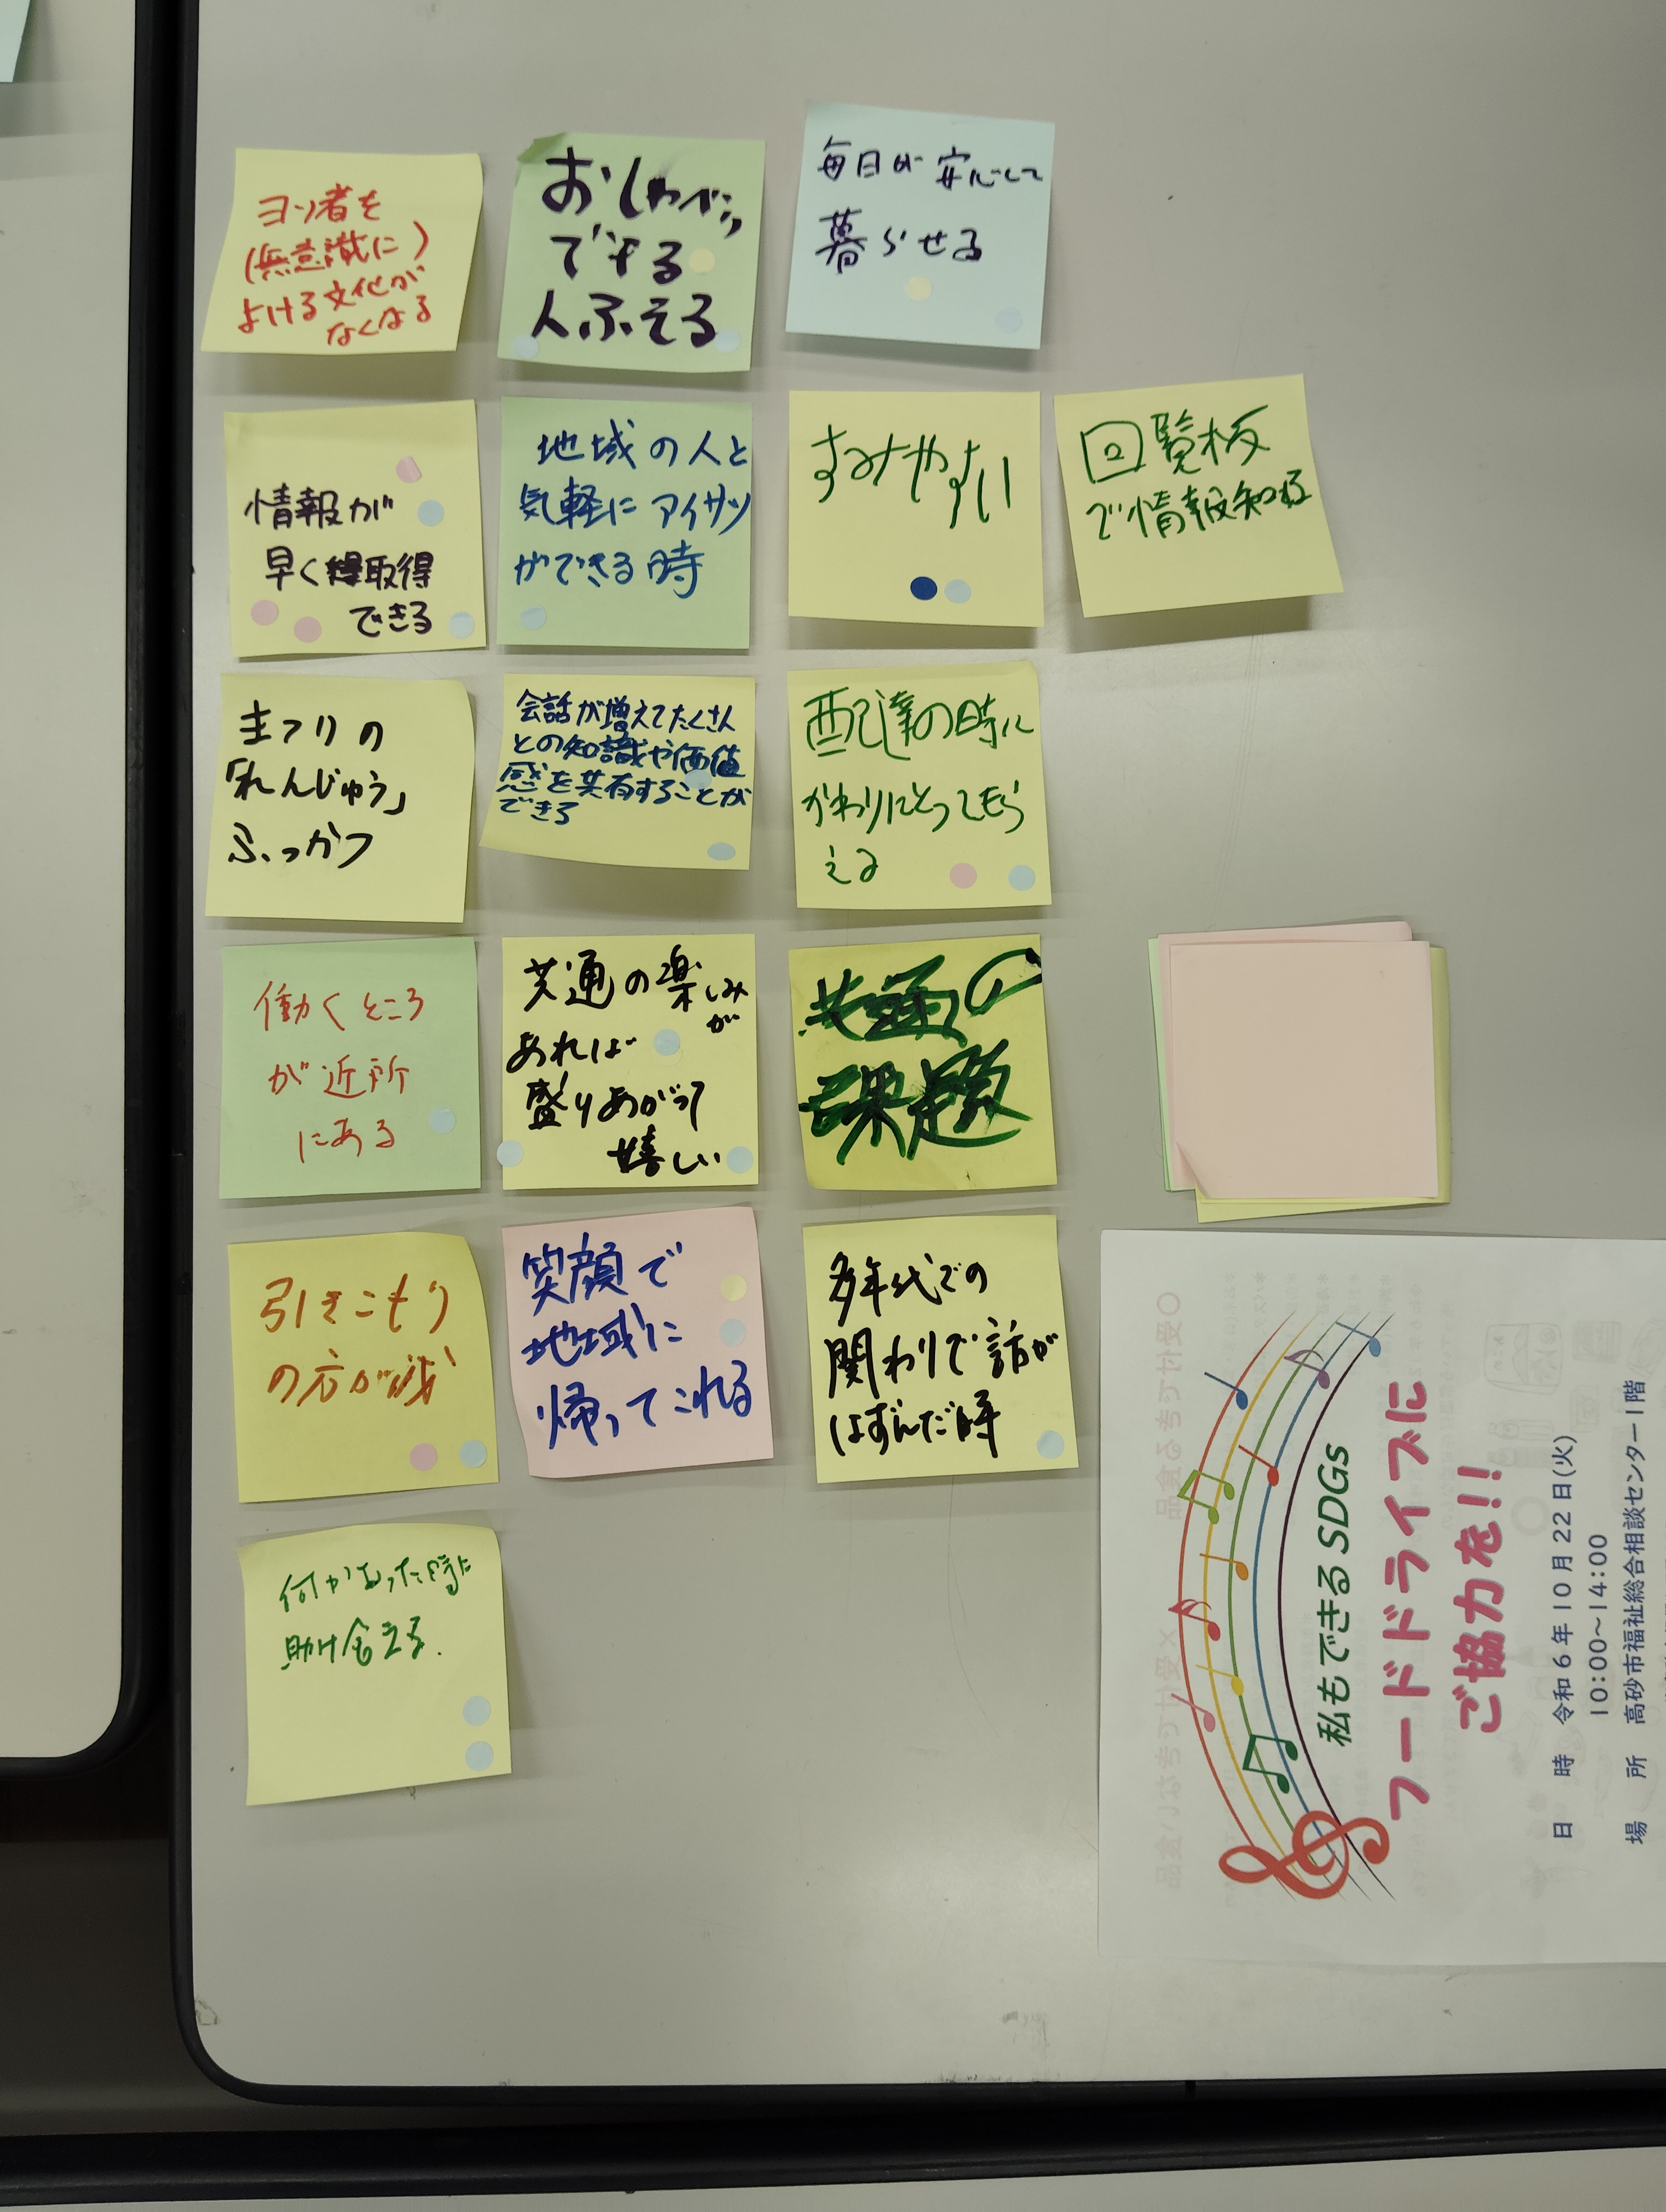 ヨソ者を
(無意識に)
よける文化が
なくなる
おしゃべり
できる
人ふえる
毎日が安心して
暮らせる
情報が
早く取得
できる
地域の人と
気軽にアイサツ
ができる時
すみやすい
回覧板
で情報知る
まつりの
「れんじゅう」
ふっかつ
会話が増えてたくさん
との知識や価値
感を共有することが
できる
配達の時に
かわりにとってもら
える
働くところ
が近所
にある
共通の楽しみ
が
あれば
盛りあがって
嬉しい
共通の
課題
引きこもり
の方が減
笑顔で
地域に
帰ってこれる
多年代での
関わりで話が
はずんだ時
何かあった時に
助け合える.
私もできるSDGs
フードドライブに
ご協力を!!
日 時 令和6年10月22日(火)
10:00~14:00
場 所 高砂市福祉総合相談センター1階